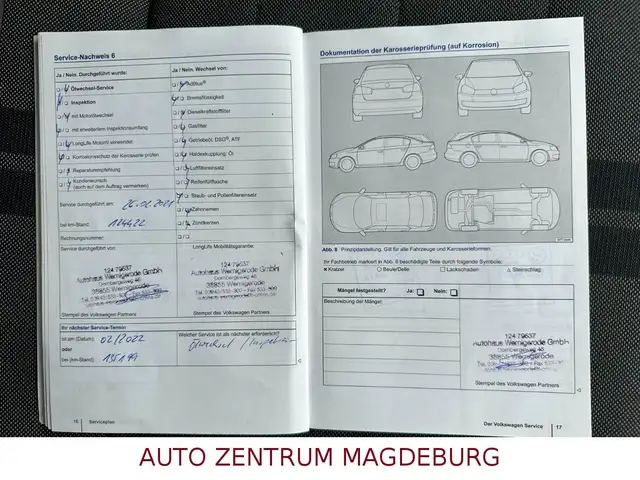 Service-Nachweis 6
Ja / Nein. Durchgeführt wurde:
Ölwechsel-Service
Inspektion
mit Motorölwechsel
mit erweitertem Inspektionsumfang
LongLife Motoröl verwendet
Korrosionsschutz der Karosserie prüfen
Reparaturempfehlung
Kundenwunsch
(auch auf dem Auftrag vermerken)
Service durchgeführt am: 26.02.2021
bei km-Stand: 124422
Rechnungsnummer:
Service durchgeführt von:
124 79537
Autohaus Wernigerode GmbH
Dornbergsweg 45
38855 Wernigerode
Stempel des Volkswagen Partners
Ja / Nein. Wechsel von:
AdBlue®
Bremsflüssigkeit
Dieselkraftstofffilter
Gasfilter
Getriebeöl: DSG®, ATF
Haldexkupplung: Öl
Luftfiltereinsatz
Reifenfüllflasche
Staub- und Pollenfiltereinsatz
Zahnriemen
Zündkerzen
LongLife Mobilitätsgarantie:
124 79537
Autohaus Wernigerode GmbH
Dornbergsweg 45
38855 Wernigerode
Stempel des Volkswagen Partners
Ihr nächster Service-Termin
ist am (Datum): 02/2022
oder
bei (km-Stand):
Welcher Service ist als nächster erforderlich?
16 Serviceplan
Dokumentation der Karosserieprüfung (auf Korrosion)
Abb. 8 Prinzipdarstellung. Gilt für alle Fahrzeuge und Karosserieformen.
Ihr Fachbetrieb markiert in Abb. 8 beschädigte Teile durch folgende Symbole:
× Kratzer ○ Beule/Delle □ Lackschaden △ Steinschlag
Mängel festgestellt? Ja: Nein:
Beschreibung der Mängel:
124 79537
Autohaus Wernigerode GmbH
Dornbergsweg 45
38855 Wernigerode
Stempel des Volkswagen Partners
Der Volkswagen Service 17
AUTO ZENTRUM MAGDEBURG